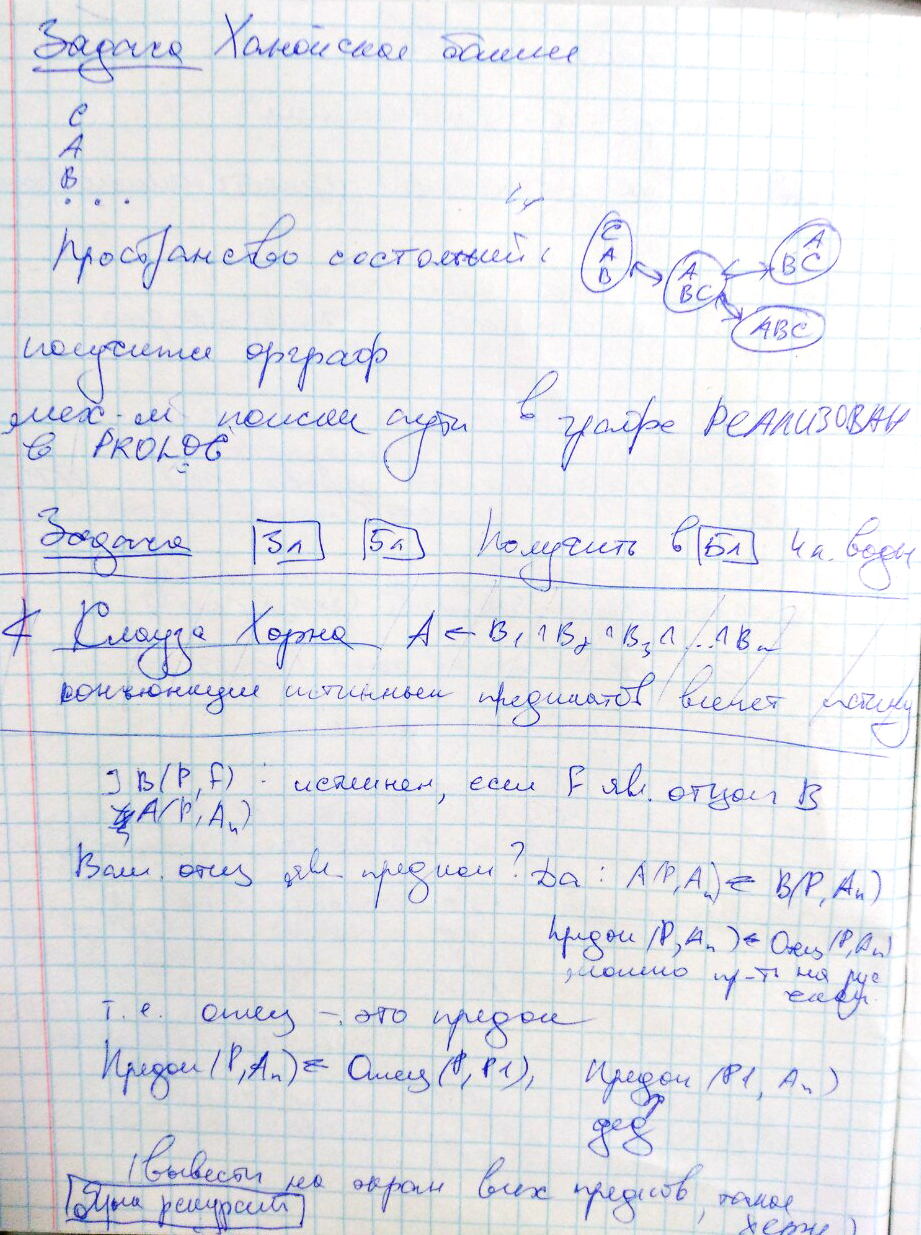 Задача Ханойские башни
C
A
B
. . .
Пространство состояний:
C
A
B
A
BC
A
BC
ABC
получится орграф
мех-м поиска пути в графе РЕАЛИЗОВАН
в PROLOG
Задача 3л 5л Получить в 5л 4 л. воды
Клауза Хорна A ← B₁ ∧ B₂ ∧ B₃ ∧ ... ∧ Bₙ
конъюнкция истинных предикатов влечет истину
B(P, F) : истинен, если F явл. отцом B
A(P, Aₙ)
Ваш отец явл. предком? Да: A(P, Aₙ) ← B(P, Aₙ)
Предок (P, Aₙ) ← Отец (P, Aₙ)
можно на рус
т.е. отец – это предок
Предок (P, Aₙ) ← Отец (P, P1), Предок (P1, Aₙ)
дед
(вывести на экран всех предков, такое
рекурсии